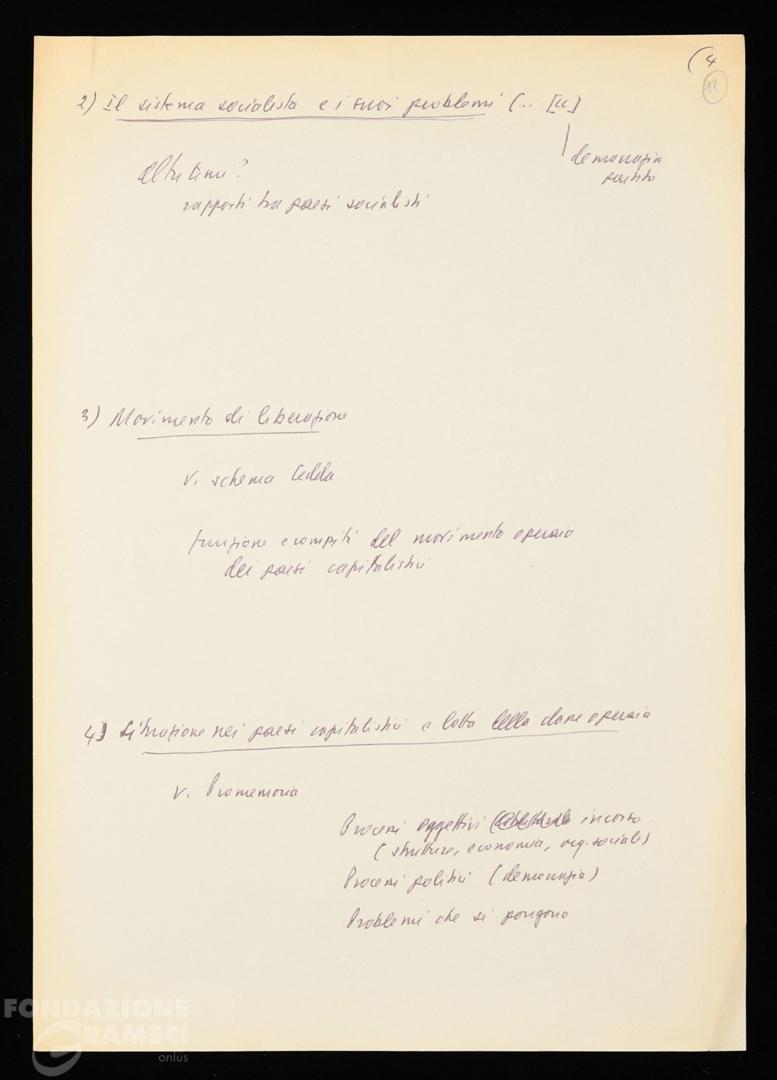 (4
12
2) Il sistema socialista e i suoi problemi (...
democrazia
partito
Altri temi?
rapporti tra paesi socialisti
3) Movimento di liberazione
v. schema Ledda
funzione e compiti del movimento operaio
dei paesi capitalistici
4) Situazione nei paesi capitalistici e lotta della classe operaia
v. Promemoria
Processi oggettivi in corso
(strutture, economia, org. sociale)
Processi politici (democrazia)
Problemi che si pongono
FONDAZIONE
GRAMSCI
onlus